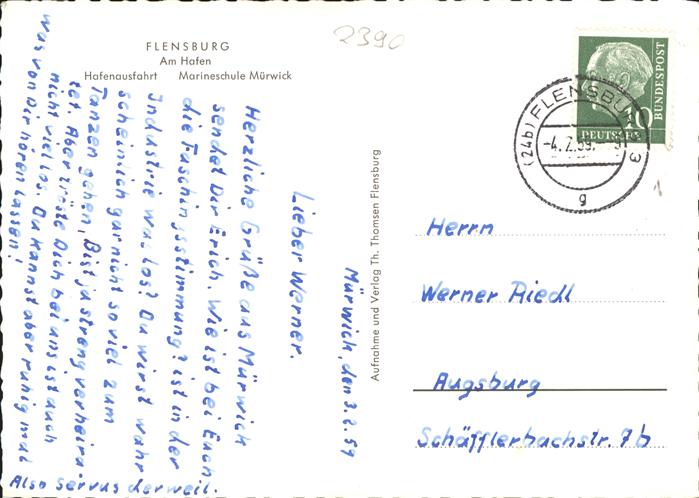 FLENSBURG
Am Hafen
Hafenausfahrt Marineschule Mürwick
2390
Mürwick, den 3.2.59
Lieber Werner.
Herzliche Grüße aus Mürwick
sendet Dir Erich. Wie ist bei Euch
die Faschingsstimmung? ist in der
Industrie was los? Du wirst wahr
scheinlich gar nicht so viel zum
Tanzen gehen, Bist ja streng verheira-
tet. Aber tröste Dich bei uns ist auch
nicht viel los. Du kannst aber ruhig mal
was von Dir hören lassen!
Also Servus derweil.
Aufnahme und Verlag Th. Thomsen Flensburg
DEUTSCHE
BUNDESPOST
10
(24b) FLENSBURG 3
-4.2.59
g
1
Herrn
Werner Riedl
Augsburg
Schäfflerbachstr. 7b